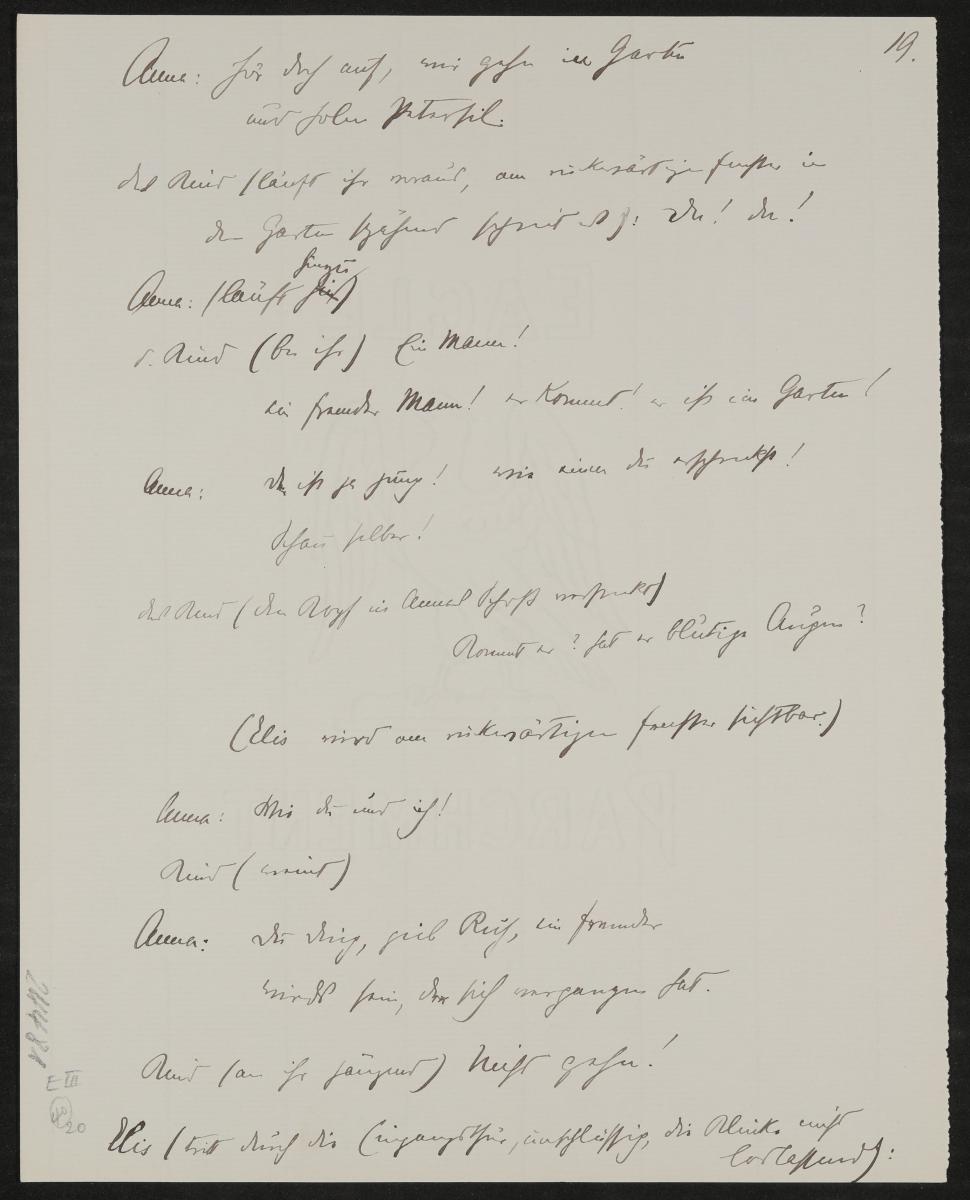 19.
Anna: Hör doch auf, wir gehn in Garten
und holen Petersil.
das Kind (läuft ihr voraus, am rückwärtigen Fenster in
den Garten spähend schreit es): Du! du!
hinzu
Anna: (läuft hin)
d. Kind (bei ihr) Ein Mann!
ein fremder Mann! er kommt! er ist im Garten!
Anna: der ist ja jung! wie einen du erschreckst!
Schau selber!
das Kind (den Kopf in Annas Schoß versteckt)
Kommt er? hat er blutige Augen?
(Elis wird am rückwärtigen Fenster sichtbar.)
Anna: Wie du und ich!
Kind (weint)
Anna: Du Ding, gieb Ruh, ein fremder
wirds sein, der sich vergangen hat.
Kind (an ihr hängend) Nicht gehn!
Elis (tritt durch die Eingangsthür, unschlüssig, die Klinke nicht
loslassend):
E III
20
EAGLE
PARCHMENT